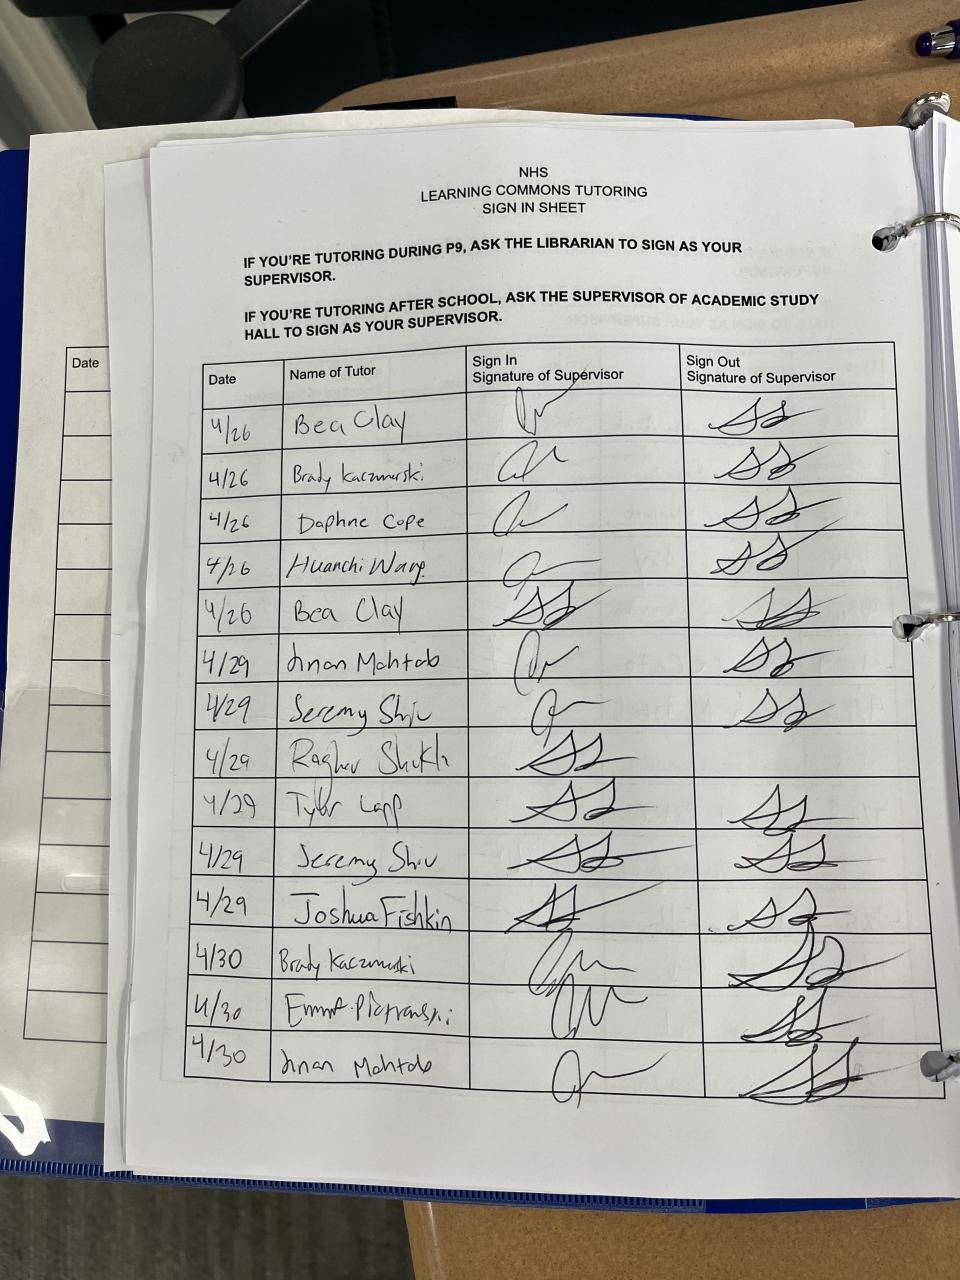 NHS
LEARNING COMMONS TUTORING
SIGN IN SHEET
IF YOU'RE TUTORING DURING P9, ASK THE LIBRARIAN TO SIGN AS YOUR
SUPERVISOR.
IF YOU'RE TUTORING AFTER SCHOOL, ASK THE SUPERVISOR OF ACADEMIC STUDY
HALL TO SIGN AS YOUR SUPERVISOR.
Date
Date Name of Tutor Sign In Signature of Supervisor Sign Out Signature of Supervisor
4/26 Bea Clay
4/26 Brady Kaczmarski
4/26 Daphne Cope
4/26 Huanchi Wang
4/26 Bea Clay
4/29 Mahtab
4/29 Jeremy Shiu
4/29 Raghav Shukla
4/29 Tyler Lapp
4/29 Jeremy Shiu
4/29 Joshua Fishkin
4/30 Brady Kaczmarski
4/30
4/30 Mahtab